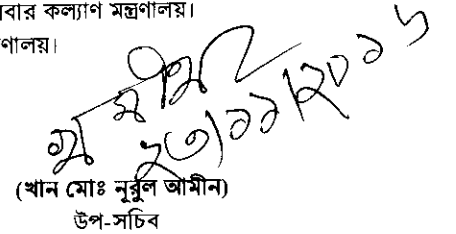 বার কল্যাণ মন্ত্রণালয়।
ণালয়।
২৩/১১/২০১৬
(খান মোঃ নূরুল আমীন)
উপ-সচিব